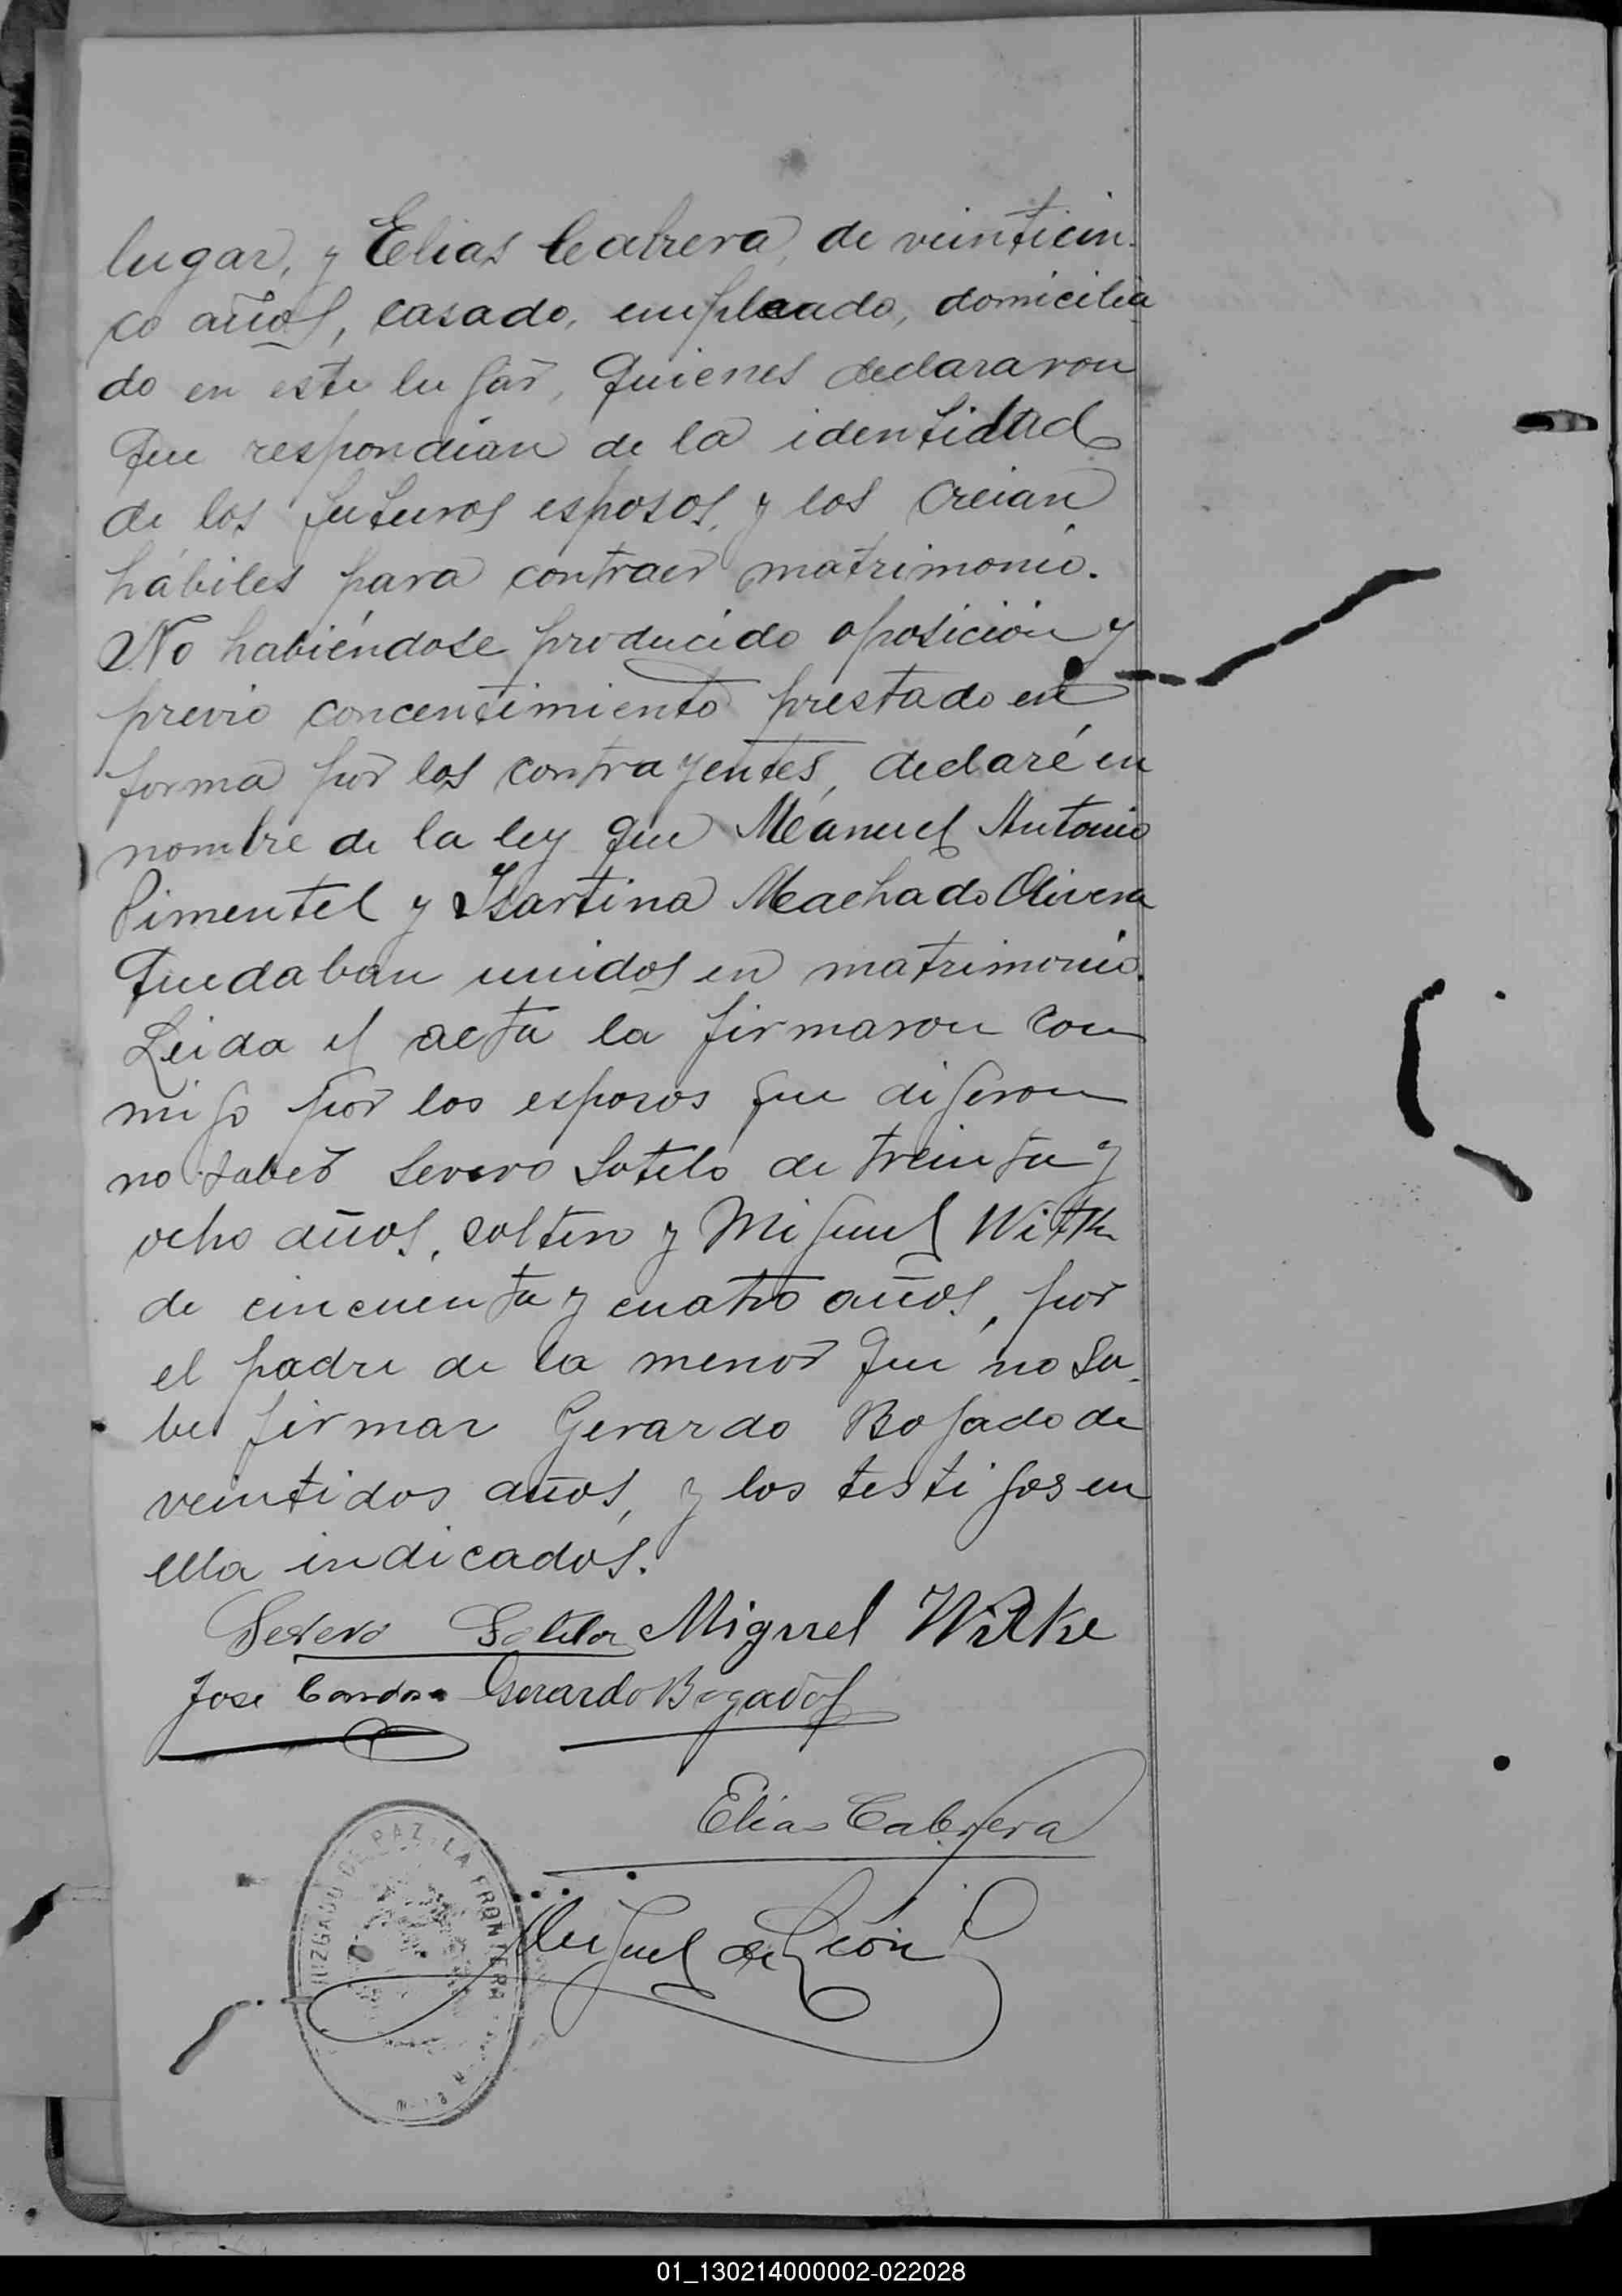 lugar, y Elias Cabrera, de veinticin-
co años, casado, empleado, domicilia
do en este lugar, quienes declararon
que respondian de la identidad
de los futuros esposos, y los creian
hábiles para contraer matrimonio.
No habiéndose producido oposición y
previo concentimiento prestado en
forma por los contrayentes, declaré en
nombre de la ley que Manuel Antonio
Pimentel y Martina Machado Olivera
quedaban unidos en matrimonio.
Leida el acta la firmaron con
migo por los esposos que digeron
no saber Severo Sotelo de treinta y
ocho años, soltero y Miguel
de cincuenta y cuatro años, por
el padre de la menor que no sa-
be firmar Gerardo Bogado de
veintidos años, y los testigos en
ella indicados.
Severo Sotelo Miguel Witke
Jose Gerardo Bogado
Elias Cabrera
JUZGADO DE PAZ LA FRONTERA
Miguel de León
01_130214000002-022028